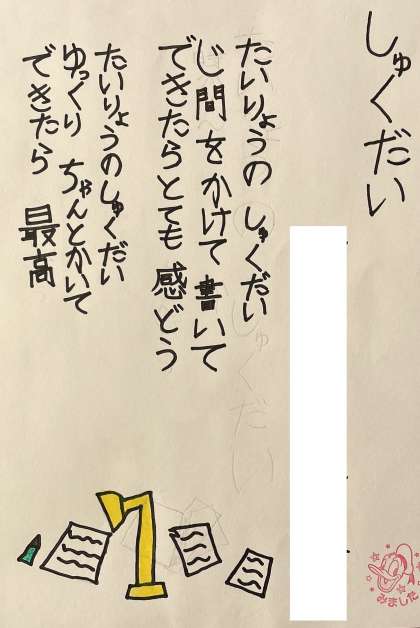 しゅくだい
たいりょうの しゅくだい
じ間をかけて書いて
できたらとても 感どう
たいりょうのしゅくだい
ゆっくり ちゃんとかいて
できたら 最高
1
みました